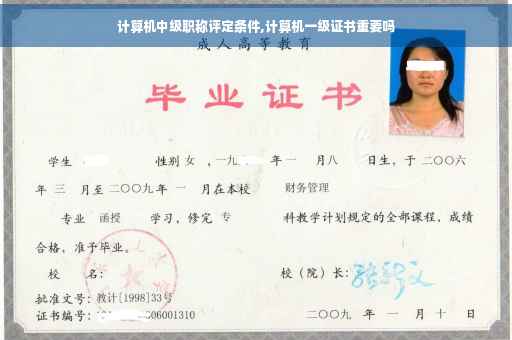 计算机中级职称评定条件,计算机一级证书重要吗
成人高等教育
毕业证书
学生 性别 女 ,一九 年一 月八 日生，于二〇〇六
年 三 月至二〇〇九年 一 月在本校 财务管理
专业 函授 学习，修完 专 科教学计划规定的全部课程，成绩
合格，准予毕业。
校 名： 校（院）长：
批准文号：教计[1998]33号
证书编号： 06001310 二〇〇九 年 一 月 十 日